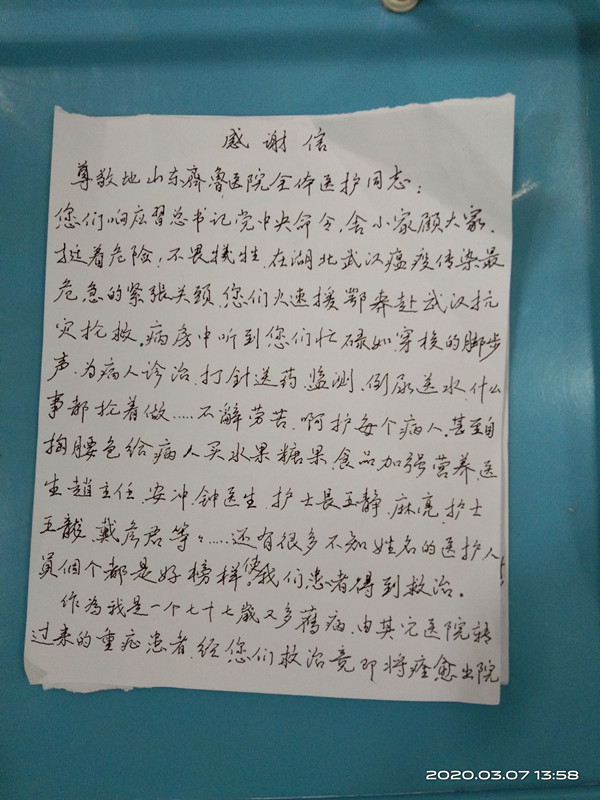 感谢信
尊敬地山东齐鲁医院全体医护同志:
您们响应習总书记党中央命令,舍小家顾大家,
挺着危险!不畏犠牲,在湖北武汉瘟疫传染最
危急的紧张关頭,您们火速援鄂奔赴武汉抗
灾抢救,病房中听到您们忙碌如穿梭的脚步
声,为病人诊治,打針送药,监测,倒尿送水,什么
事都抢着做……不解劳苦,啊护每个病人,甚至自
掏腰包给病人买水果糖果,食品加强营养,医
生趙主任,安冲,钟医生,护士長王静,麻亮,护士
王龍,戴彦君等々……还有很多不知姓名的医护人
員個个都是好榜样,使我们患者得到救治。
作為我是一个七十七歳又多舊病,由其它医院转
过来的重症患者,经您们救治竟即将痊愈出院
2020.03.07 13:58